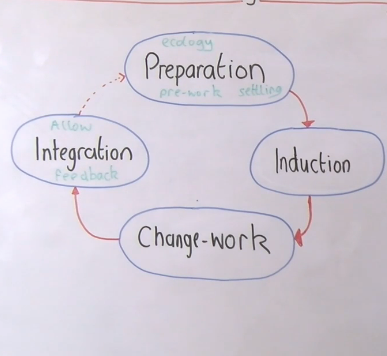 ecology
Preparation
pre-work settling
Induction
Change-work
Allow
Integration
Feedback